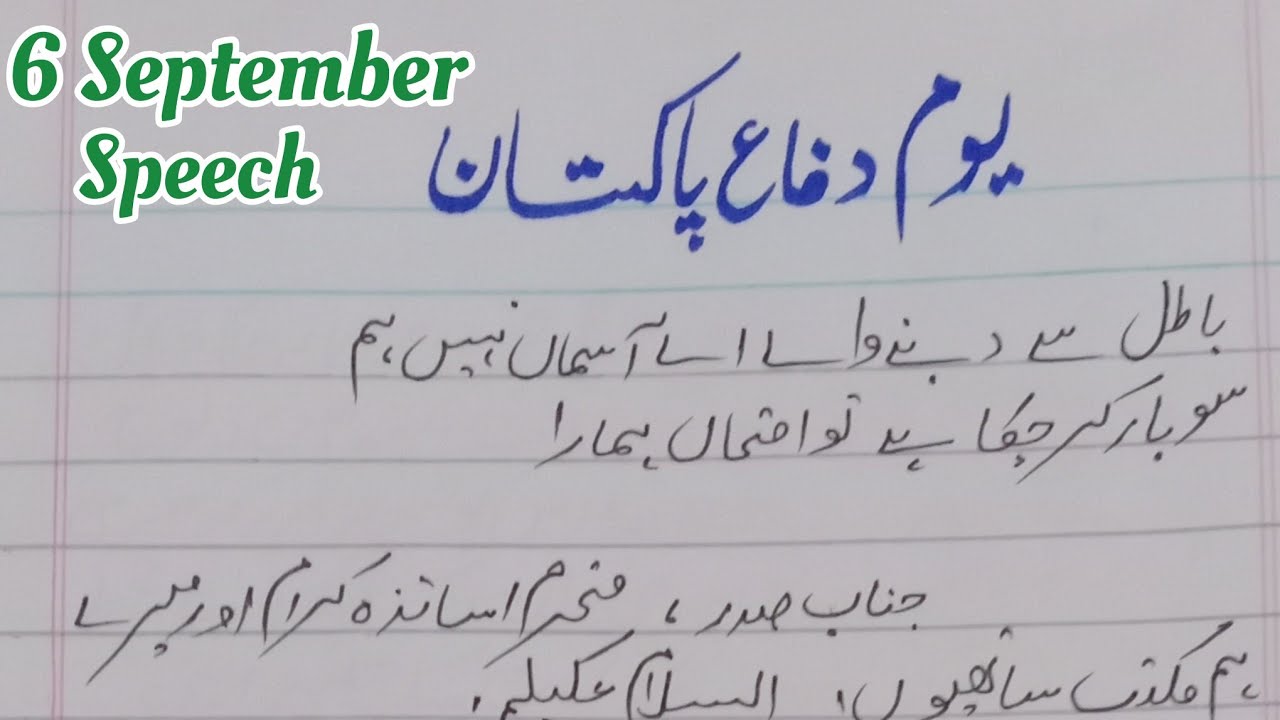 6 September
Speech
یوم دفاع پاکستان
باطل سے دبنے والے اے آسماں نہیں ہم
سو بار کر چکا ہے تو امتحاں ہمارا
جناب صدر، محترم اساتذہ کرام اور میرے
ہم مکتب ساتھیوں، السلام علیکم۔